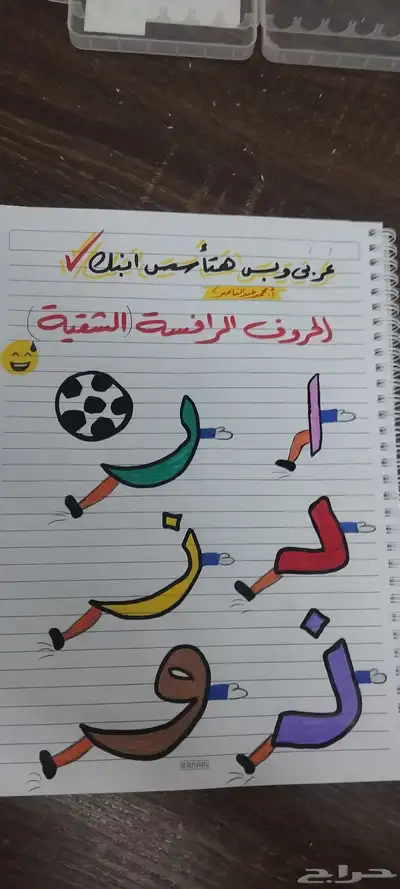 عربى وبس هتأسس ابنك
أ. محمد عبدالناصر
الحروف الرافسة (الشقية)
ا
ر
د
ز
ذ
و
KANARI
حراج